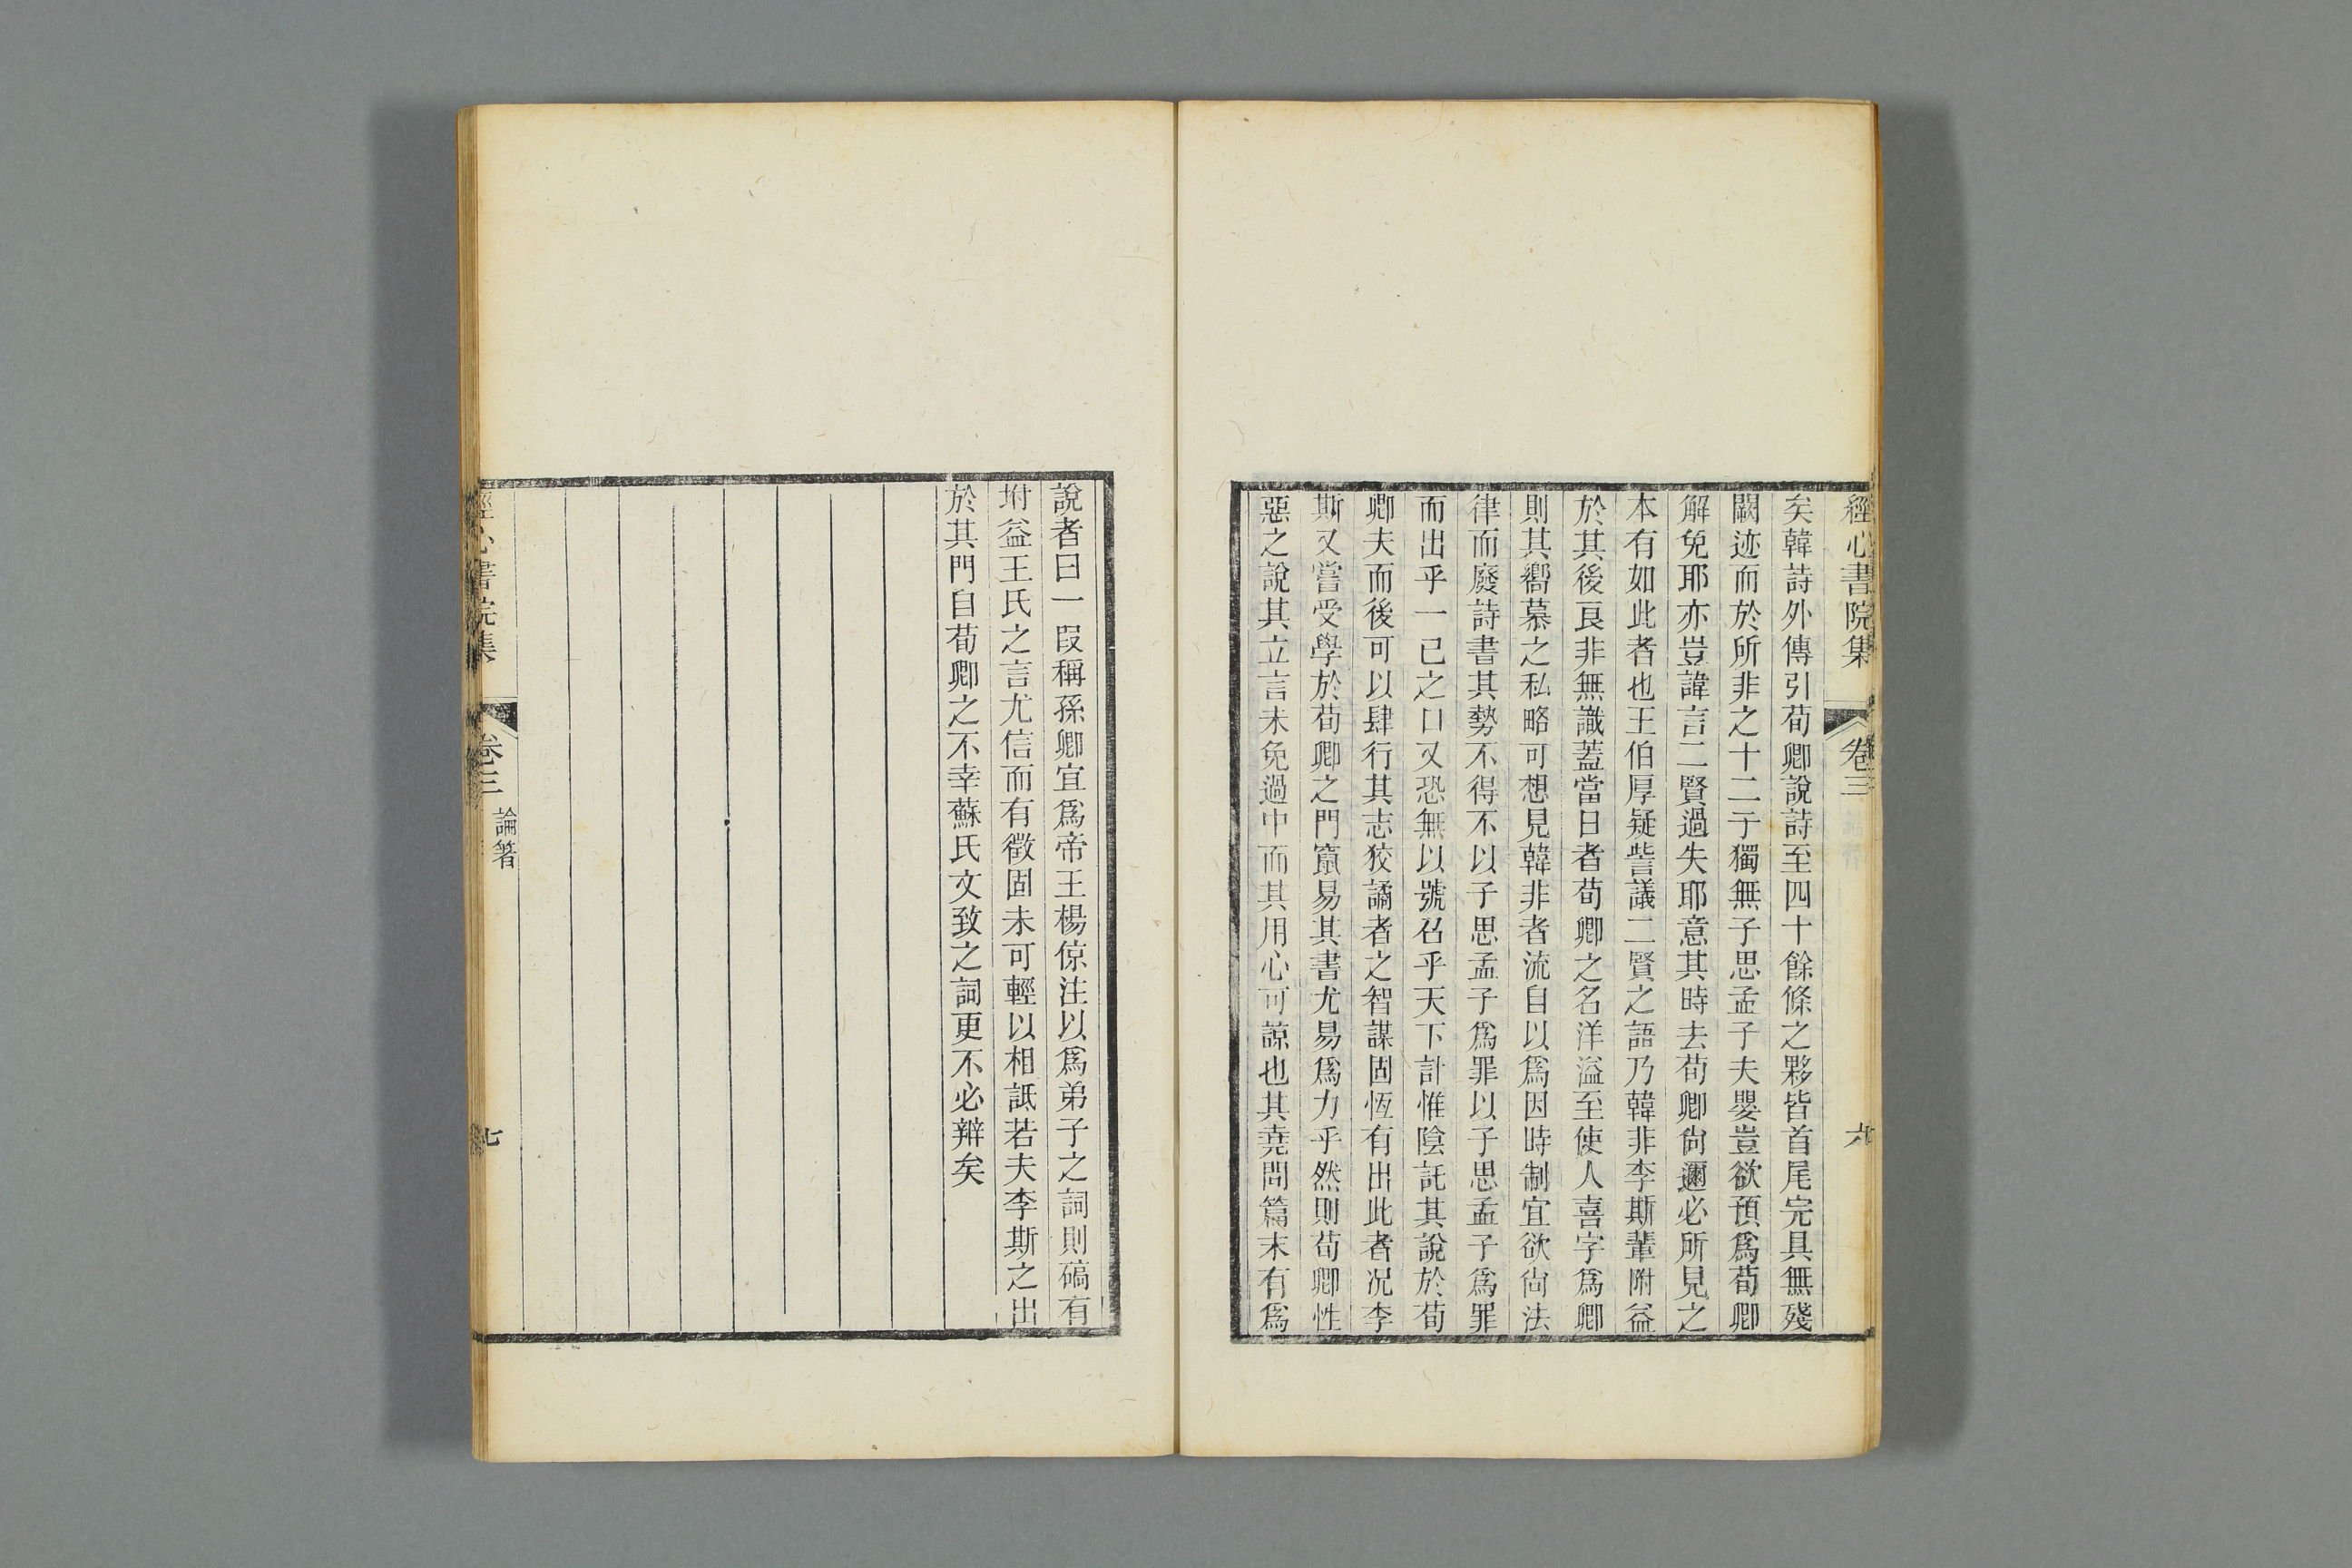 經心書院集 卷三 六
矣韓詩外傳引荀卿說詩至四十餘條之夥皆首尾完具無殘
闕迹而於所非之十二子獨無子思孟子夫嬰豈欲預爲荀卿
解免耶亦豈諱言二賢過失耶意其時去荀卿尙邇必所見之
本有如此者也王伯厚疑訾議二賢之語乃韓非李斯輩附益
於其後良非無識蓋當日者荀卿之名洋溢至使人喜字爲卿
則其嚮慕之私略可想見韓非者流自以爲因時制宜欲尙法
律而廢詩書其勢不得不以子思孟子爲罪以子思孟子爲罪
而出乎一己之口又恐無以號召乎天下計惟陰託其說於荀
卿夫而後可以肆行其志狡譎者之智謀固恆有出此者况李
斯又嘗受學於荀卿之門竄易其書尤易爲力乎然則荀卿性
惡之說其立言未免過中而其用心可諒也其堯問篇末有爲
說者曰一段稱孫卿宜爲帝王楊倞注以爲弟子之詞則碻有
坿益王氏之言尤信而有徵固未可輕以相詆若夫李斯之出
於其門自荀卿之不幸蘇氏文致之詞更不必辯矣
經心書院集 卷三 論箸 七